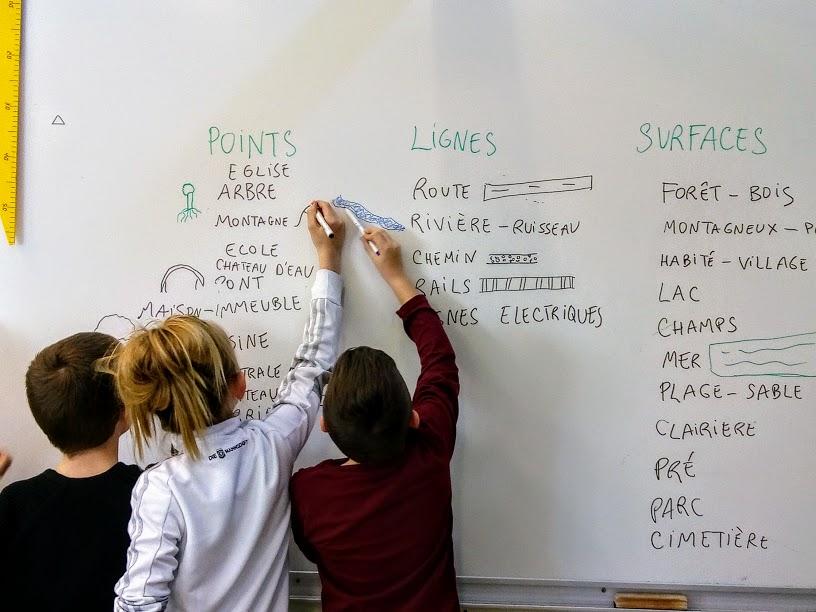 POINTS
EGLISE
ARBRE
MONTAGNE
ECOLE
CHATEAU D'EAU
PONT
MAISON-IMMEUBLE
LIGNES
ROUTE
RIVIÈRE - RUISSEAU
CHEMIN
RAILS
ELECTRIQUES
SURFACES
FORÊT - BOIS
MONTAGNEUX -
HABITÉ - VILLAGE
LAC
CHAMPS
MER
PLAGE - SABLE
CLAIRIERE
PRÉ
PARC
CIMETIÈRE